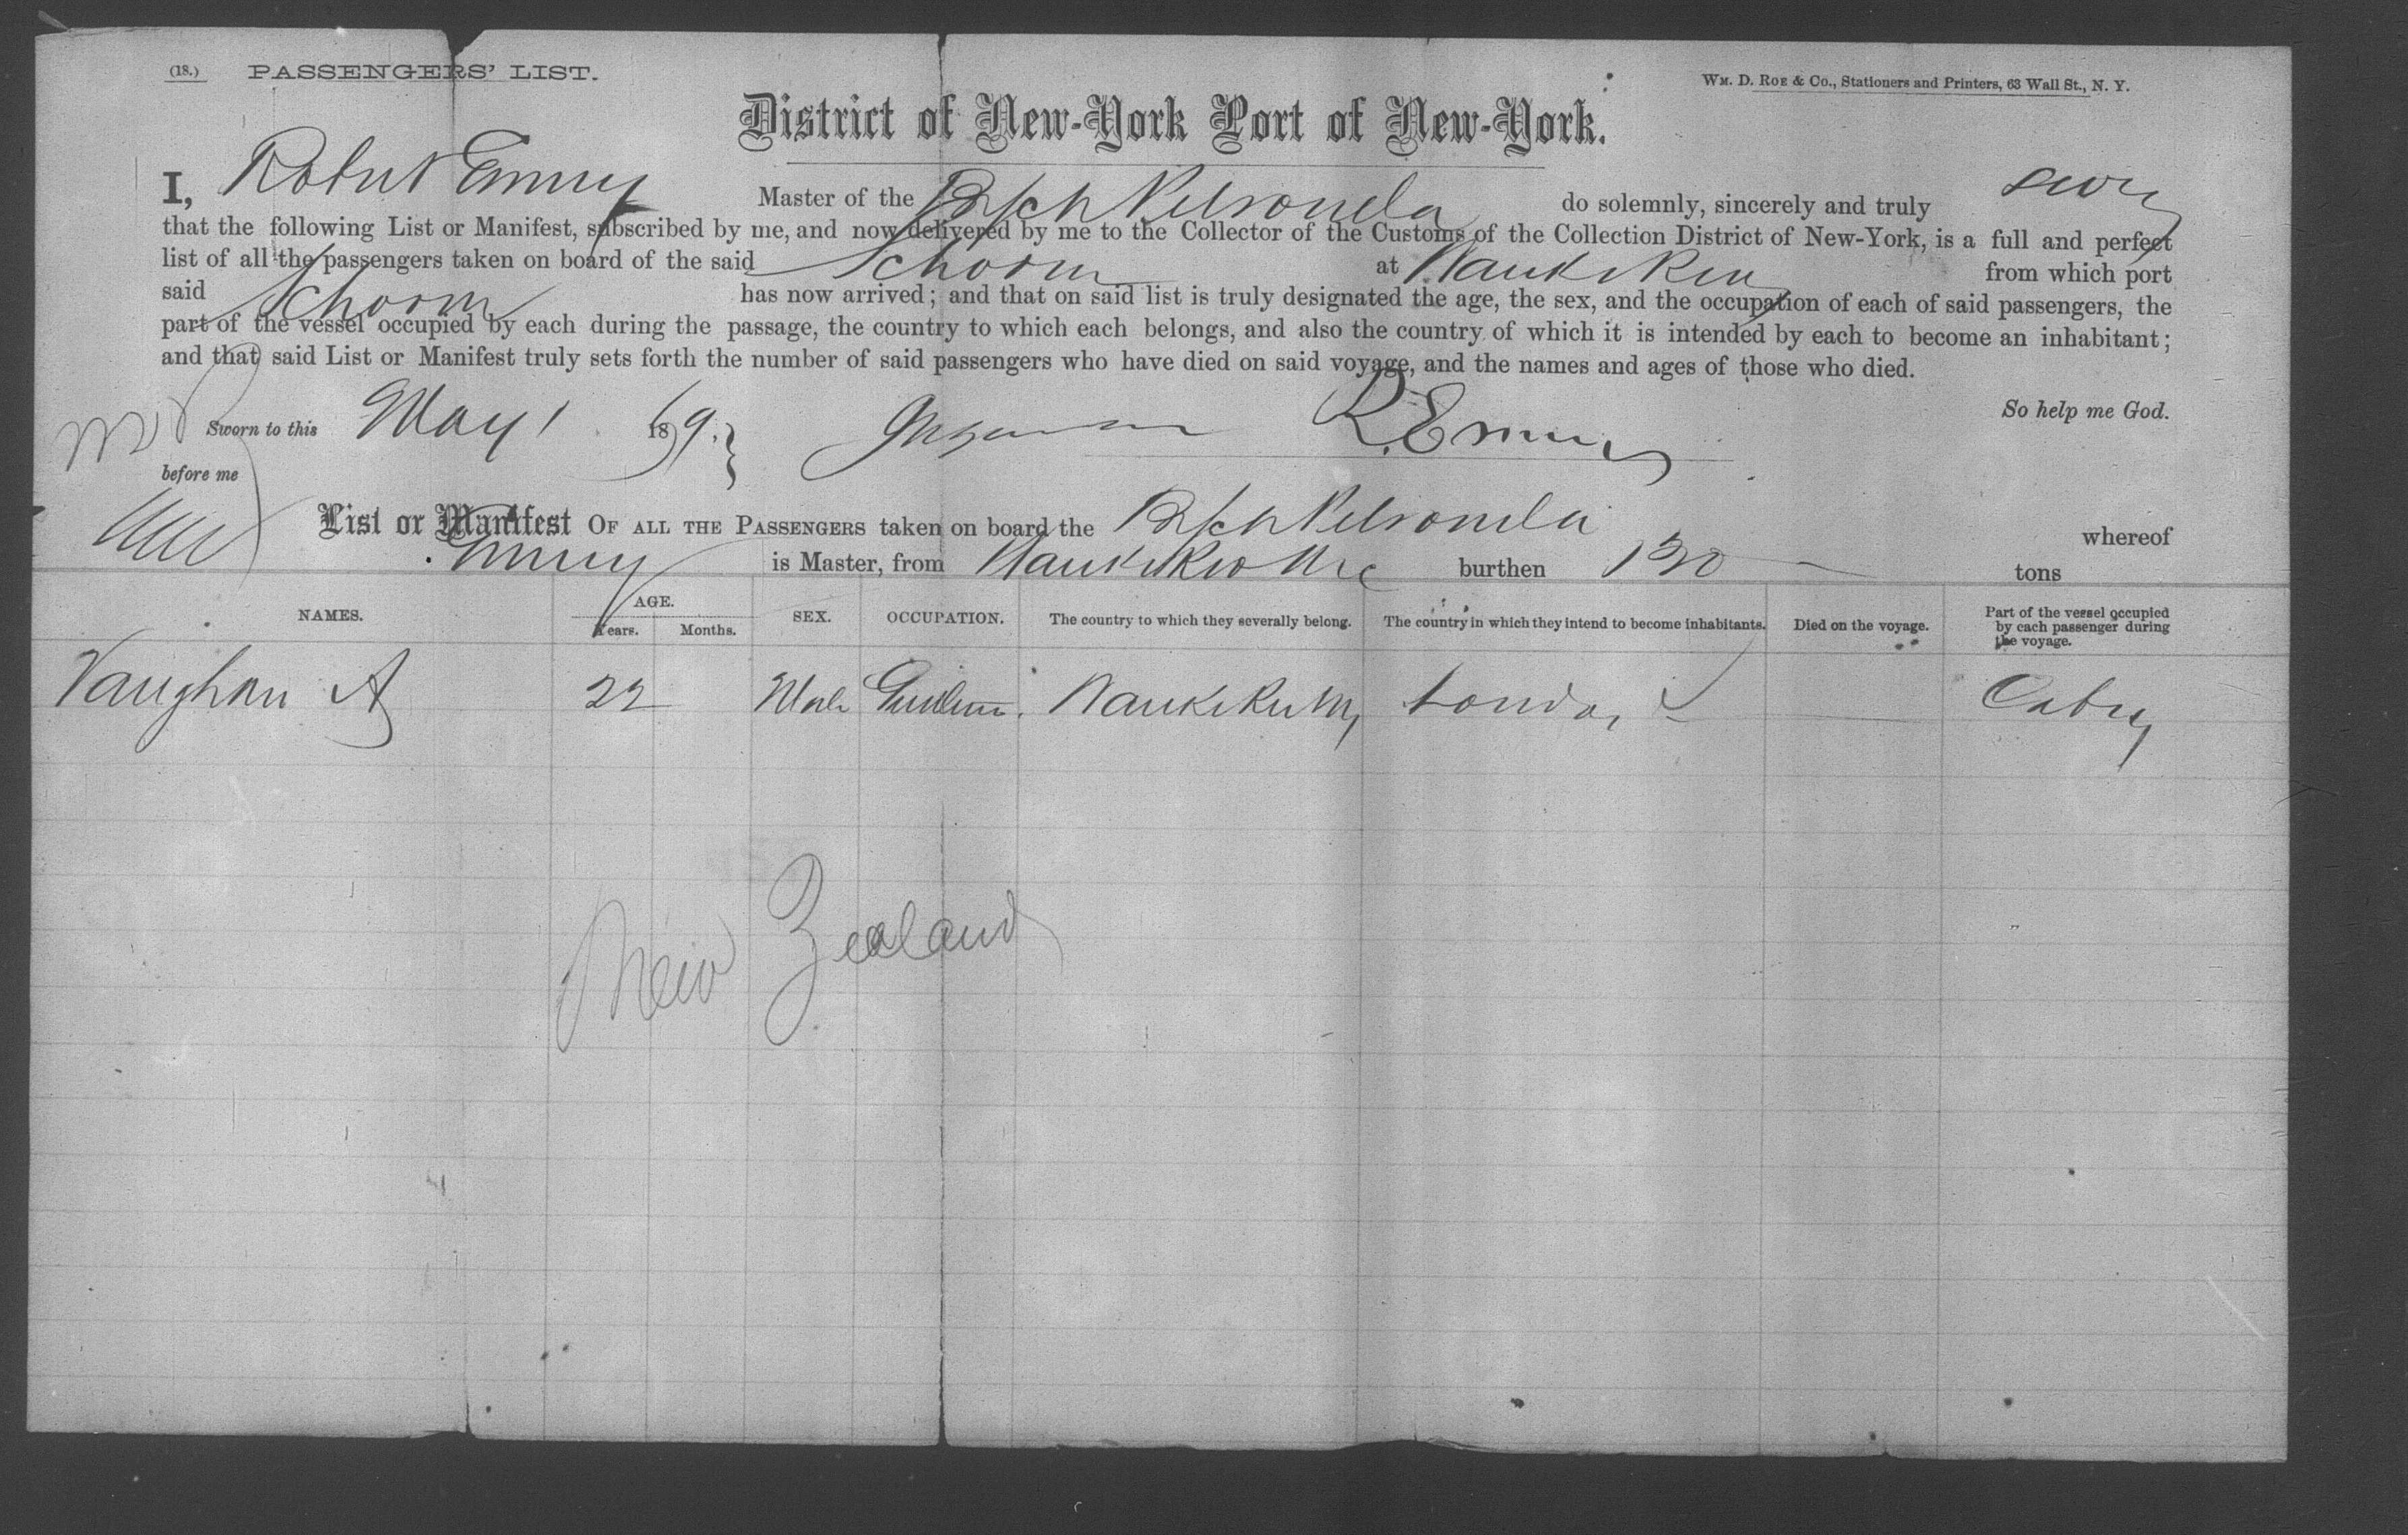 (18.) PASSENGERS' LIST. Wm. D. Roe & Co., Stationers and Printers, 63 Wall St., N. Y.
District of New-York Port of New-York.
I, Robert Master of the do solemnly, sincerely and truly
that the following List or Manifest, subscribed by me, and now delivered by me to the Collector of the Customs of the Collection District of New-York, is a full and perfect
list of all the passengers taken on board of the said Schoom at from which port
said Schoom has now arrived; and that on said list is truly designated the age, the sex, and the occupation of each of said passengers, the
part of the vessel occupied by each during the passage, the country to which each belongs, and also the country of which it is intended by each to become an inhabitant;
and that said List or Manifest truly sets forth the number of said passengers who have died on said voyage, and the names and ages of those who died.
So help me God.
Sworn to this May 1 1869.
before me
List or Manifest OF ALL THE PASSENGERS taken on board the whereof
is Master, from burthen 130 tons
NAMES. AGE. SEX. OCCUPATION. The country to which they severally belong. The country in which they intend to become inhabitants. Died on the voyage. Part of the vessel occupied by each passenger during the voyage.
Years. Months.
Vaughan A 22 Male London
New Zealand